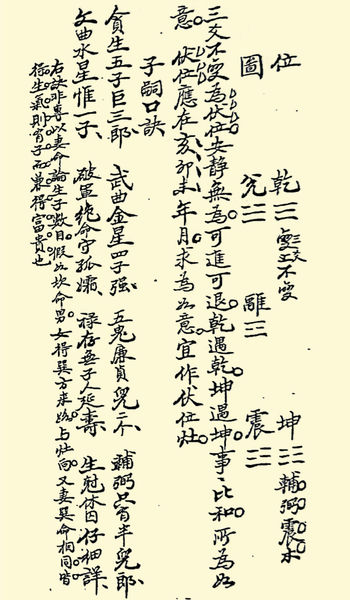 位 乾☰ 不變 坤☷ 輔弼震木
圖 兌☱ 離☲ 震☳
三爻不變為伏位安靜無為可進可退乾遇乾坤遇坤事〻比和所為如
意 伏位應在亥卯未年月求為如意宜作伏位灶
子嗣口訣
貪生五子巨三郎 武曲金星四子強 五鬼廉貞兒二个 輔弼只有半兒郎
文曲水星惟一子 破軍絕命守孤孀 祿存無子人延壽 生尅休囚仔細詳
右訣非專以妻命論生子數目假如坎命男女得巽方來路与灶向又妻巽命相同皆
得生氣則有子而兼得富貴也